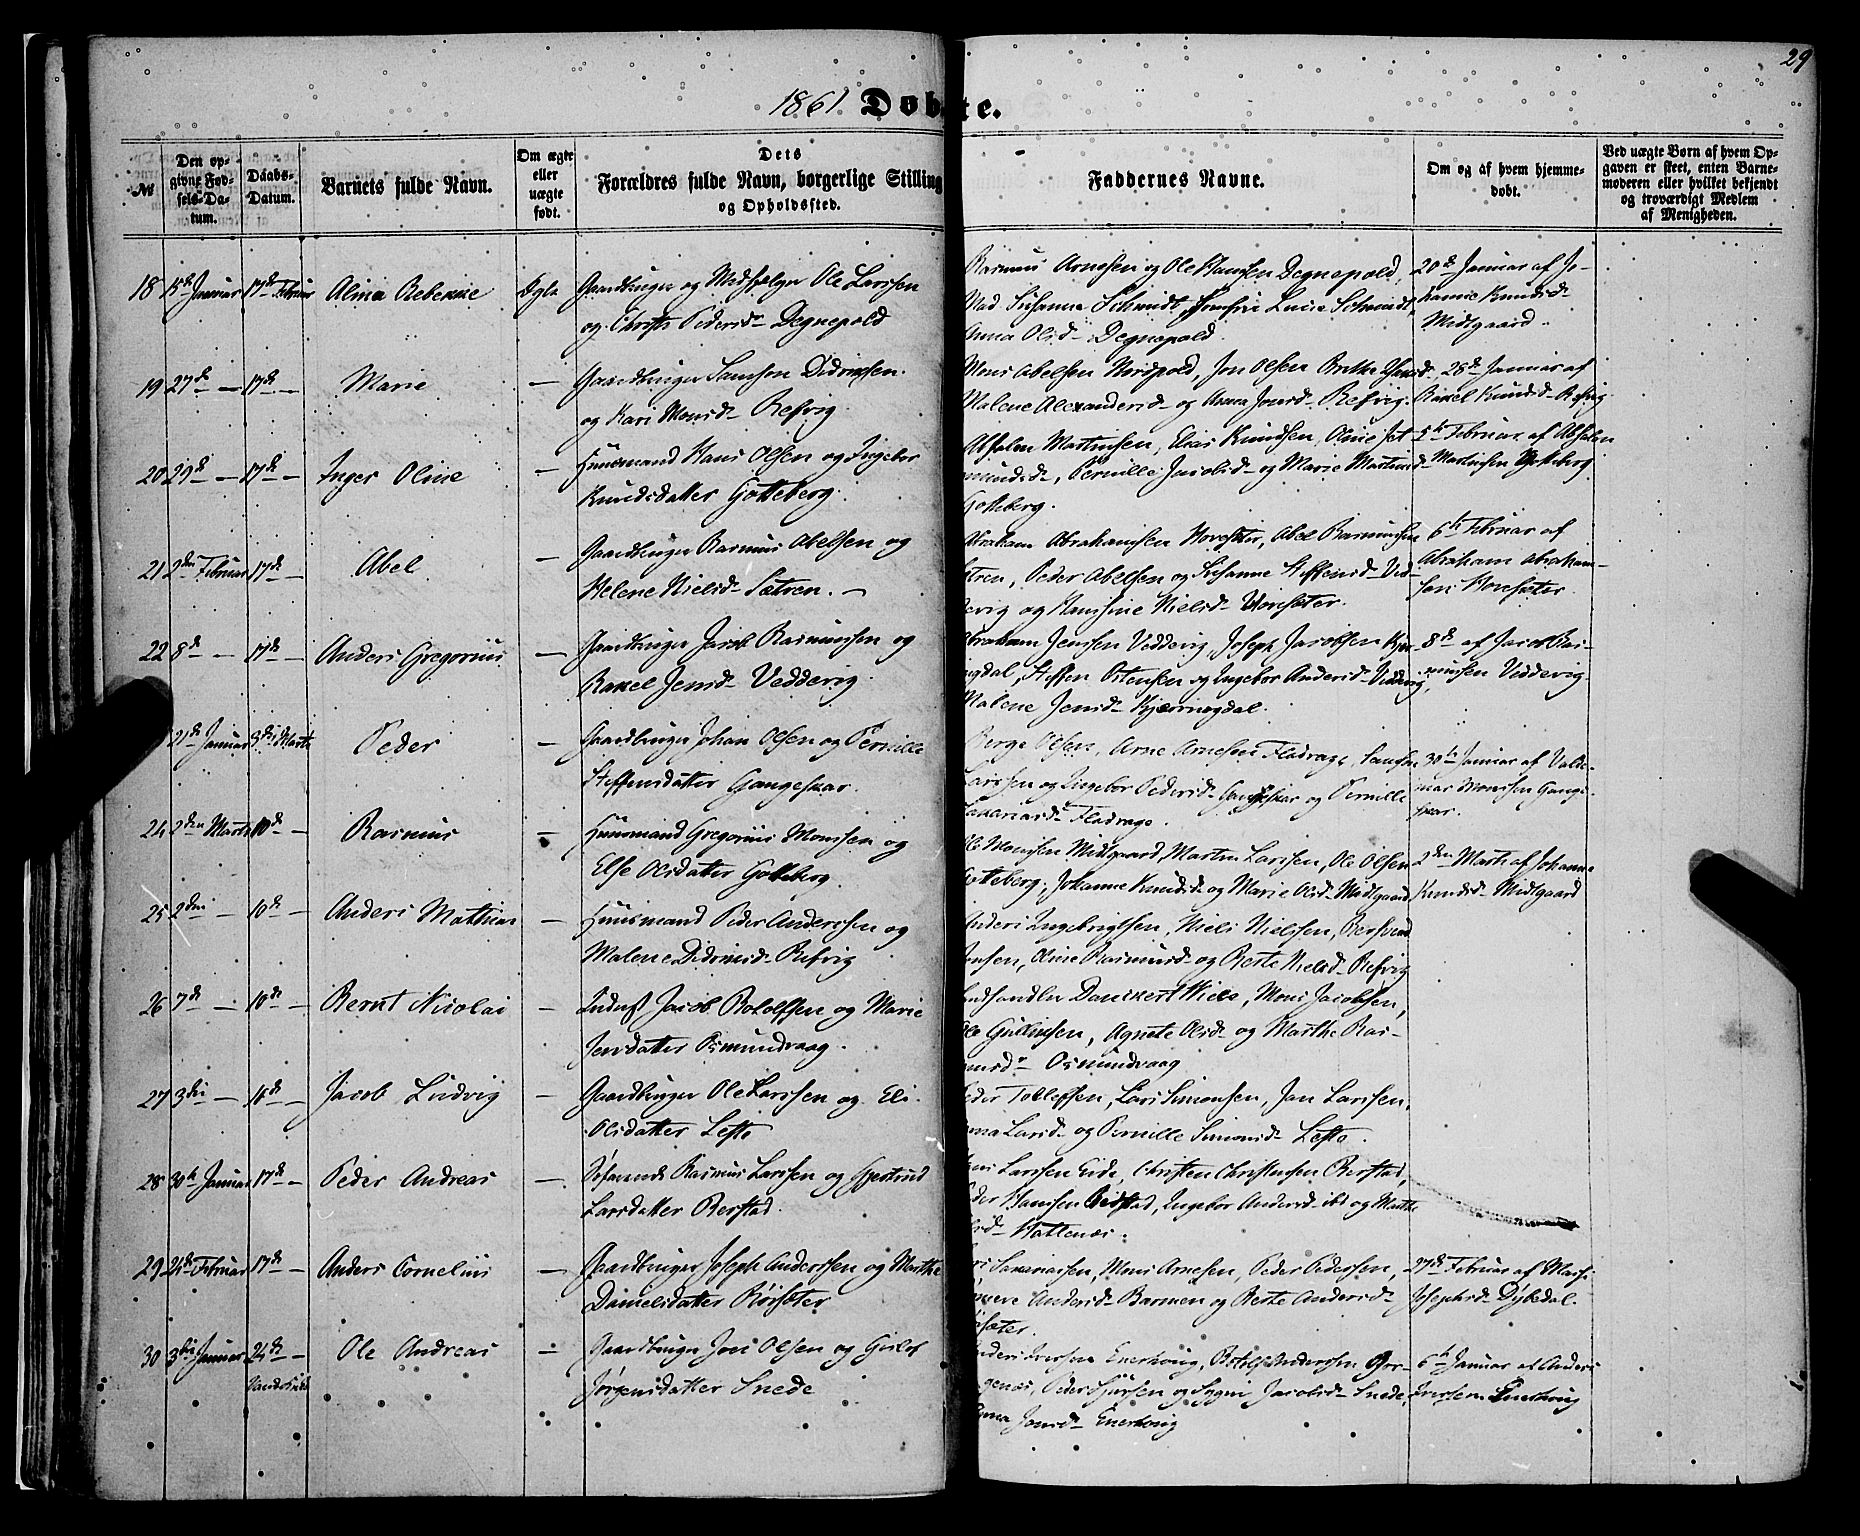 29
1861. Døbte.
№
Den opgivne Fødsels-Datum.
Daabs-Datum.
Barnets fulde Navn.
Om ægte eller uægte født.
Dets Forældres fulde Navn, borgerlige Stilling og Opholdssted.
Faddernes Navne.
Om og af hvem hjemmedøbt.
Ved uægte Børn af hvem Opgaven er skeet, enten Barnemoderen eller hvilket bekjendt og troværdigt Medlem af Menigheden.
18 15de Januar 17de Februar Alma Rebekke Ægte Gaardbruger og Ole Larssen
og Christi Pedersd. Degnepold
Rasmus Arnesen og Ole Hanssen Degnepold,
Mad Susanna Schmidt, Josefine Lucie Schmidt,
Anna Olsd. Degnepold.
20de Januar af Jo-
hanne Knudsd.
Midtgaard.
19 27de — 17de — Marie — Gaardbruger Samson Didriksen
og Kari Monsd. Refvig.
Mons Abelsen Nordpold, Jon Olsen Brethe
Malene Alexandersd. og Anna Jonsd. Refvig.
28de Januar af
Rakel Knudsd. Refvig
20 29de — 17de — Inger Oline — Huusmand Hans Olsen og Ingebor
Knudsdatter Gotteberg.
Absalon Martinsen, Elias Knudsen, Oline Jet-
mundsd., Pernille Jacobsd. og Marie Martinsd.
Gotteberg.
5te Februar af Absalon
Martinsen Gotteberg
21 2den Februar 17de — Abel — Gaardbruger Rasmus Abelsen og
Helene Nielsd. Sætren. —
Abraham Abrahamsen Hovesæter, Abel Rasmussen
Sætren, Peder Abelsen og Susanne Steffensd. Ved-
devig og Hanssine Nielsd. Hovesæter.
6te Februar af
Abraham Abraham-
sen Hovesæter.
22 8de — 17de — Anders Gregorius — Gaardbruger Jacob Rasmussen og
Rakel Jensd. Veddevig.
Abraham Jenssen Veddevig, Joseph Jacobsen Kjør-
ingdal, Steffen Ostensen og Ingebor Andersd. Veddevig,
Malene Jensd. Kjørringdal.
8de af Jacob Ras-
mussen Veddevig
21de Januar 3die Marts Peder — Gaardbruger Johan Olsen og Pernille
Steffensdatter Gangeskar.
Berge Olsen, Arne Arnesen Fladrage, Samson
Larssen og Ingebor Pedersd. Gangeskar og Pernille
Sakariasd. Fladrage.
30te Januar af Valde-
mar Monsen Gange-
skar.
24 2den Marts 10de — Rasmus — Huusmand Gregorius Monssen og
Else Olsdatter Gotteberg.
Ole Monssen Midtgaard, Martin Larssen, Ole Olsen
Gotteberg, Johanne Knudsd. og Marie Olsd. Midtgaard
2den Marts af Johanne
Knudsd. Midtgaard
25 2den — 10de — Anders Mathias — Huusmand Peder Anderssen og
Malene Didriksd. Refvig
Anders Ingebrigtsen, Niels Nielssen, Bersvend
Jonsen, Oline Rasmusd. og Berte Nielsd. Refvig
26 7de — 10de — Bernt Nicolai — Inderst Jacob Bototfsen og Marie
Jensdatter Osmundvaag.
Landhandler Danckert Niels, Mons Jacobsen,
Ole Gulliksen, Agnete Olsd. og Marthe Ras-
musd. Osmundvaag
27 3die — 16de — Jacob Ludvig — Gaardbruger Ole Larssen og Eli
Olsdatter Lefto
Peder Tollefsen, Lars Simonsen, Jan Larssen,
Anna Larsd. og Pernille Simonsd. Lefto.
28 30te Januar 17de — Peder Andreas — Rasmus Larssen og Gjertrud
Larsdatter Berstad.
Larssen Eide, Christen Christensen Berstad,
Peder Hanssen Berstad, Ingebor Andersd. ibd og Marthe
Olsd. Hattenæs.
29 21de Februar 17de — Anders Cornelius — Gaardbruger Joseph Anderssen og Marthe
Danielsdatter Rørsæter
Sakariassen, Mons Arnesen, Peder Pederssen,
Andersd. Barmen og Berte Andersd.
Rørsæter.
27de Februar af
Josephsd. Dybedal.
30 3die Januar 24de — Ole Andreas — Gaardbruger Jon Olsen og Guloe
Jørgensdatter Snede
Anders Iverssen Enerhoug, Botolf Anderssen Ør-
genæs, Peder Sjursen og Sygni Jacobsd. Snede,
Anna Jonsd. Enerhoug
6te Januar af Anders
Iverssen Enerhoug